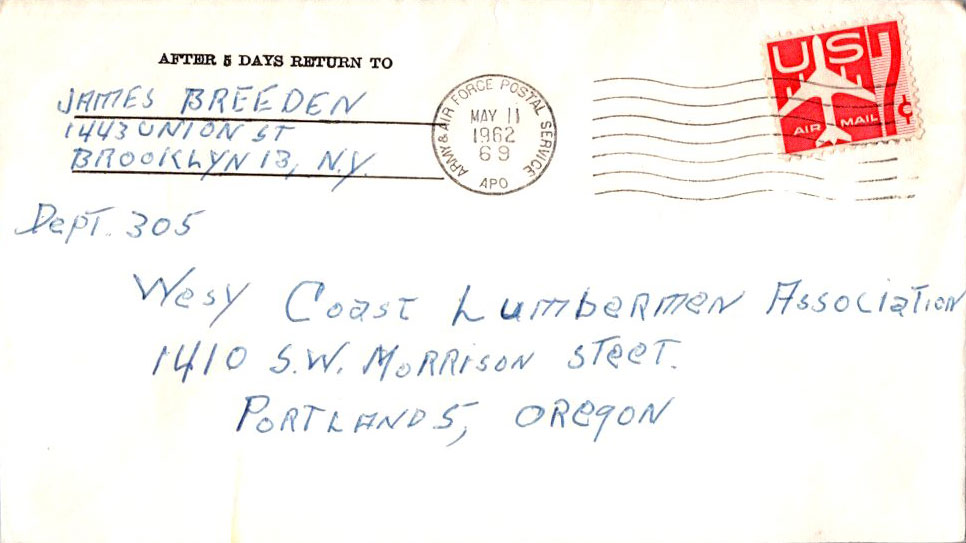 AFTER 5 DAYS RETURN TO
JAMES BREEDEN
1443 UNION ST
BROOKLYN 13, N.Y.
ARMY & AIR FORCE POSTAL SERVICE
MAY 11
1962
69
APO
US
7¢
AIR MAIL
Dept. 305
Wesy Coast Lumbermen Association
1410 S.W. Morrison Steet.
Portland 5, Oregon